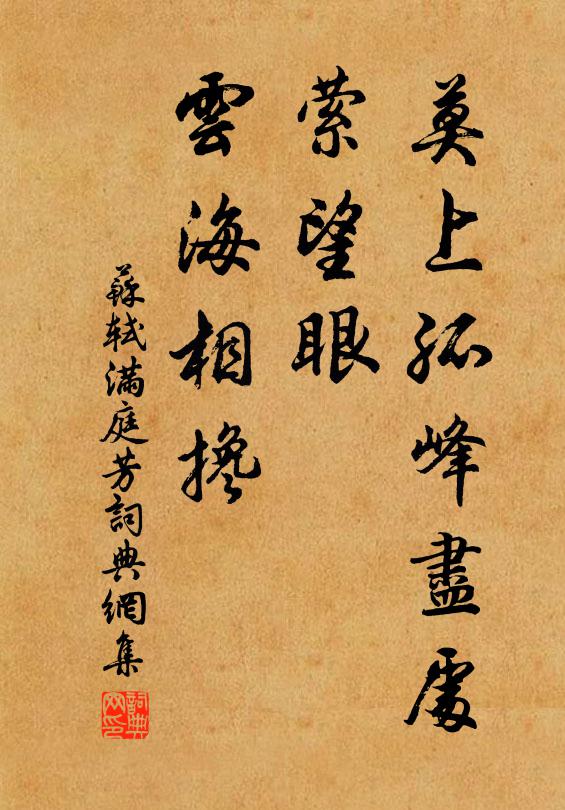 莫上孤峰盡處
萦望眼
雲海相攙
蘇軾滿庭芳詞典網集
詞典网印